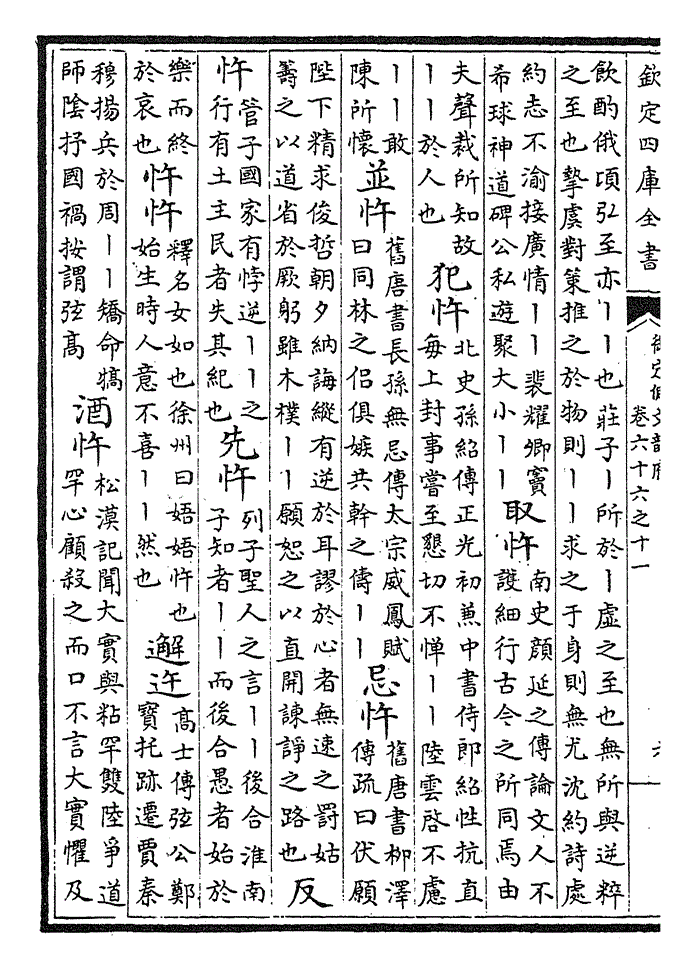 欽定四庫全書
御定佩文韻府
卷六十六之十一
六
飲酌俄頃弘至亦丨丨也莊子丨所於丨虛之至也無所與逆粹
之至也摯虞對策推之於物則丨丨求之于身則無尤沈約詩處
約志不渝接廣情丨丨裴耀卿竇
希球神道碑公私遊聚大小丨丨
取忤
南史顔延之傳論文人不
護細行古今之所同焉由
夫聲裁所知故
丨丨於人也
犯忤
北史孫紹傳正光初兼中書侍郎紹性抗直
每上封事嘗至懇切不憚丨丨陸雲啓不慮
丨丨敢
陳所懷
並忤
舊唐書長孫無忌傳太宗威鳳賦
曰同林之侣俱嫉共幹之儔丨丨
忌忤
舊唐書柳澤
傳疏曰伏願
陛下精求俊哲朝夕納誨縱有逆於耳謬於心者無速之罰姑
籌之以道省於厥躬雖木樸丨丨願恕之以直開諫諍之路也
反
忤
管子國家有悖逆丨丨之
行有土主民者失其紀也
先忤
列子聖人之言丨丨後合淮南
子知者丨丨而後合愚者始於
樂而終
於哀也
忤忤
釋名女如也徐州曰娪娪忤也
始生時人意不喜丨丨然也
邂迕
高士傳弦公鄭
寶托跡遷賈秦
穆揚兵於周丨丨矯命犒
師陰抒國禍按謂弦高
酒忤
松漠記聞大實與粘罕雙陸爭道
罕心顧殺之而口不言大實懼及